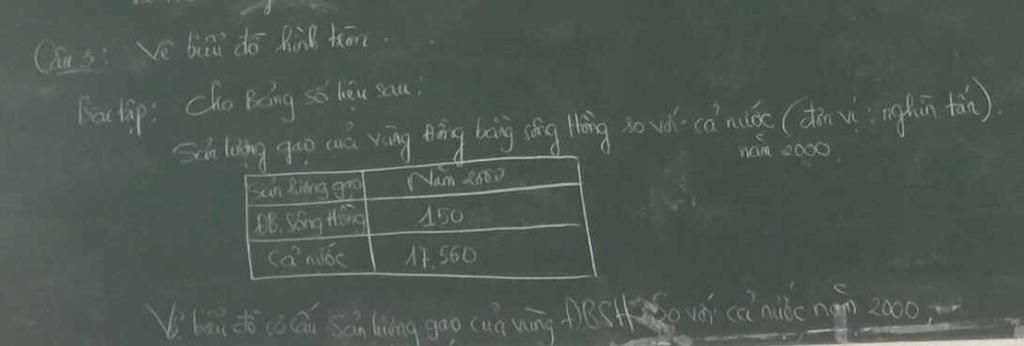 Câu 3: Vẽ biểu đồ hình tròn.
Bài tập: Cho Bảng số liệu sau:
Sản lượng gạo của vùng Đồng bằng sông Hồng so với cả nước (đơn vị: nghìn tấn).
năm 2000.
Sản lượng gạo Năm 2000
ĐB. Sông Hồng 150
Cả nước 17.560
Vẽ biểu đồ cơ cấu sản lượng gạo của vùng ĐBSH so với cả nước năm 2000.